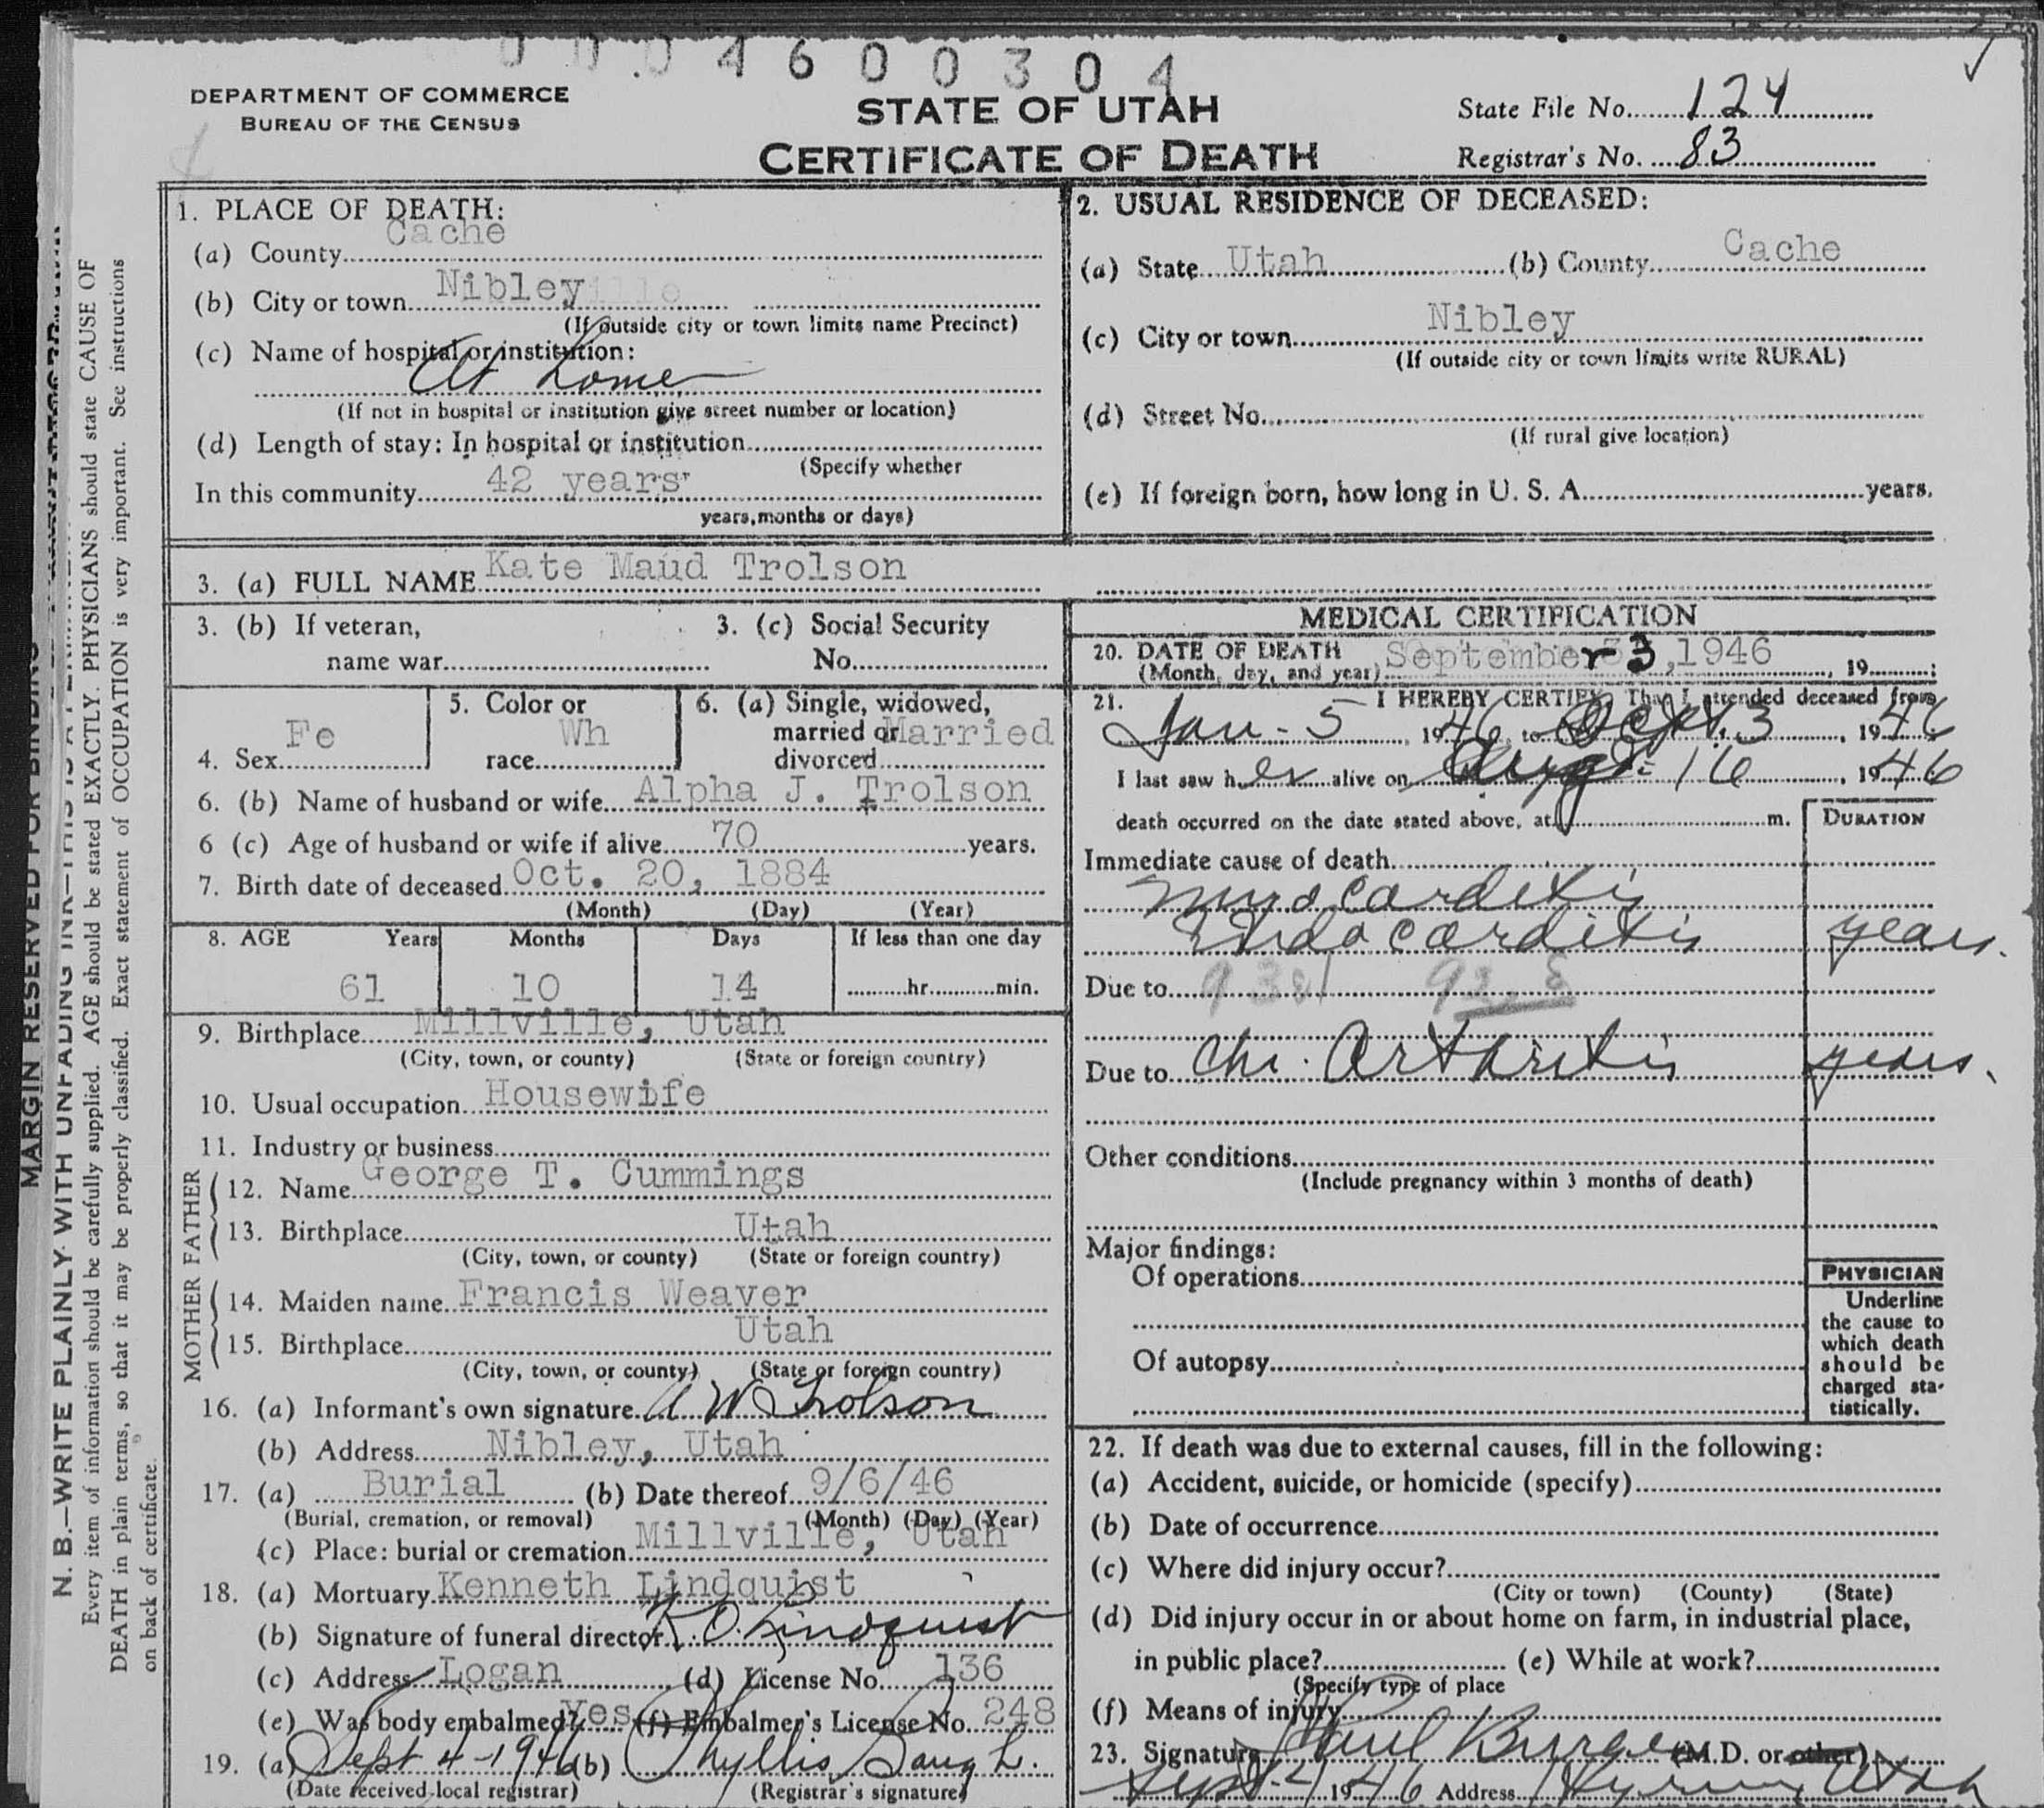 0004600304
DEPARTMENT OF COMMERCE
BUREAU OF THE CENSUS
STATE OF UTAH
CERTIFICATE OF DEATH
State File No. 124
Registrar's No. 83
1. PLACE OF DEATH:
(a) County Cache
(b) City or town Nibley
(If outside city or town limits name Precinct)
(c) Name of hospital or institution:
At home
(If not in hospital or institution give street number or location)
(d) Length of stay: In hospital or institution
(Specify whether
In this community 42 years
years, months or days)
2. USUAL RESIDENCE OF DECEASED:
(a) State Utah (b) County Cache
(c) City or town Nibley
(If outside city or town limits write RURAL)
(d) Street No.
(If rural give location)
(e) If foreign born, how long in U. S. A. years.
3. (a) FULL NAME Kate Maud Trolson
3. (b) If veteran, name war
3. (c) Social Security No.
4. Sex Fe
5. Color or race Wh
6. (a) Single, widowed, married or divorced Married
6. (b) Name of husband or wife Alpha J. Trolson
6 (c) Age of husband or wife if alive 70 years.
7. Birth date of deceased Oct. 20, 1884
(Month) (Day) (Year)
8. AGE Years Months Days If less than one day
61 10 14 hr. min.
9. Birthplace Millville, Utah
(City, town, or county) (State or foreign country)
10. Usual occupation Housewife
11. Industry or business
FATHER
12. Name George T. Cummings
13. Birthplace Utah
(City, town, or county) (State or foreign country)
MOTHER
14. Maiden name Francis Weaver
15. Birthplace Utah
(City, town, or county) (State or foreign country)
16. (a) Informant's own signature A W Trolson
(b) Address Nibley, Utah
17. (a) Burial (b) Date thereof 9/6/46
(Burial, cremation, or removal) (Month) (Day) (Year)
(c) Place: burial or cremation Millville, Utah
18. (a) Mortuary Kenneth Lindquist
(b) Signature of funeral director K O Lindquist
(c) Address Logan (d) License No. 136
(e) Was body embalmed? yes (f) Embalmer's License No. 248
19. (a) Sept 4-1946 (b) Phyllis
(Date received local registrar) (Registrar's signature)
MEDICAL CERTIFICATION
20. DATE OF DEATH September 3, 1946, 19 ;
(Month, day, and year)
21. I HEREBY CERTIFY, That I attended deceased from
Jan - 5, 1946, to Sept. 3, 1946
I last saw her alive on Aug. 16, 1946
death occurred on the date stated above, at m.
DURATION
Immediate cause of death
Myocarditis
Endocarditis years.
Due to
Due to Chr. Arthritis years.
Other conditions
(Include pregnancy within 3 months of death)
Major findings:
Of operations
Of autopsy
PHYSICIAN
Underline
the cause to
which death
should be
charged sta-
tistically.
22. If death was due to external causes, fill in the following:
(a) Accident, suicide, or homicide (specify)
(b) Date of occurrence
(c) Where did injury occur?
(City or town) (County) (State)
(d) Did injury occur in or about home on farm, in industrial place,
in public place? (e) While at work?
(Specify type of place
(f) Means of injury
23. Signature Paul (M.D. or other)
Sept-4 1946 Address Hyrum, Utah
MARGIN RESERVED FOR BINDING
N. B.—WRITE PLAINLY WITH UNFADING INK—THIS IS A
Every item of information should be carefully supplied. AGE should be stated EXACTLY. PHYSICIANS should state CAUSE OF
DEATH in plain terms, so that it may be properly classified. Exact statement of OCCUPATION is very important. See instructions
on back of certificate.